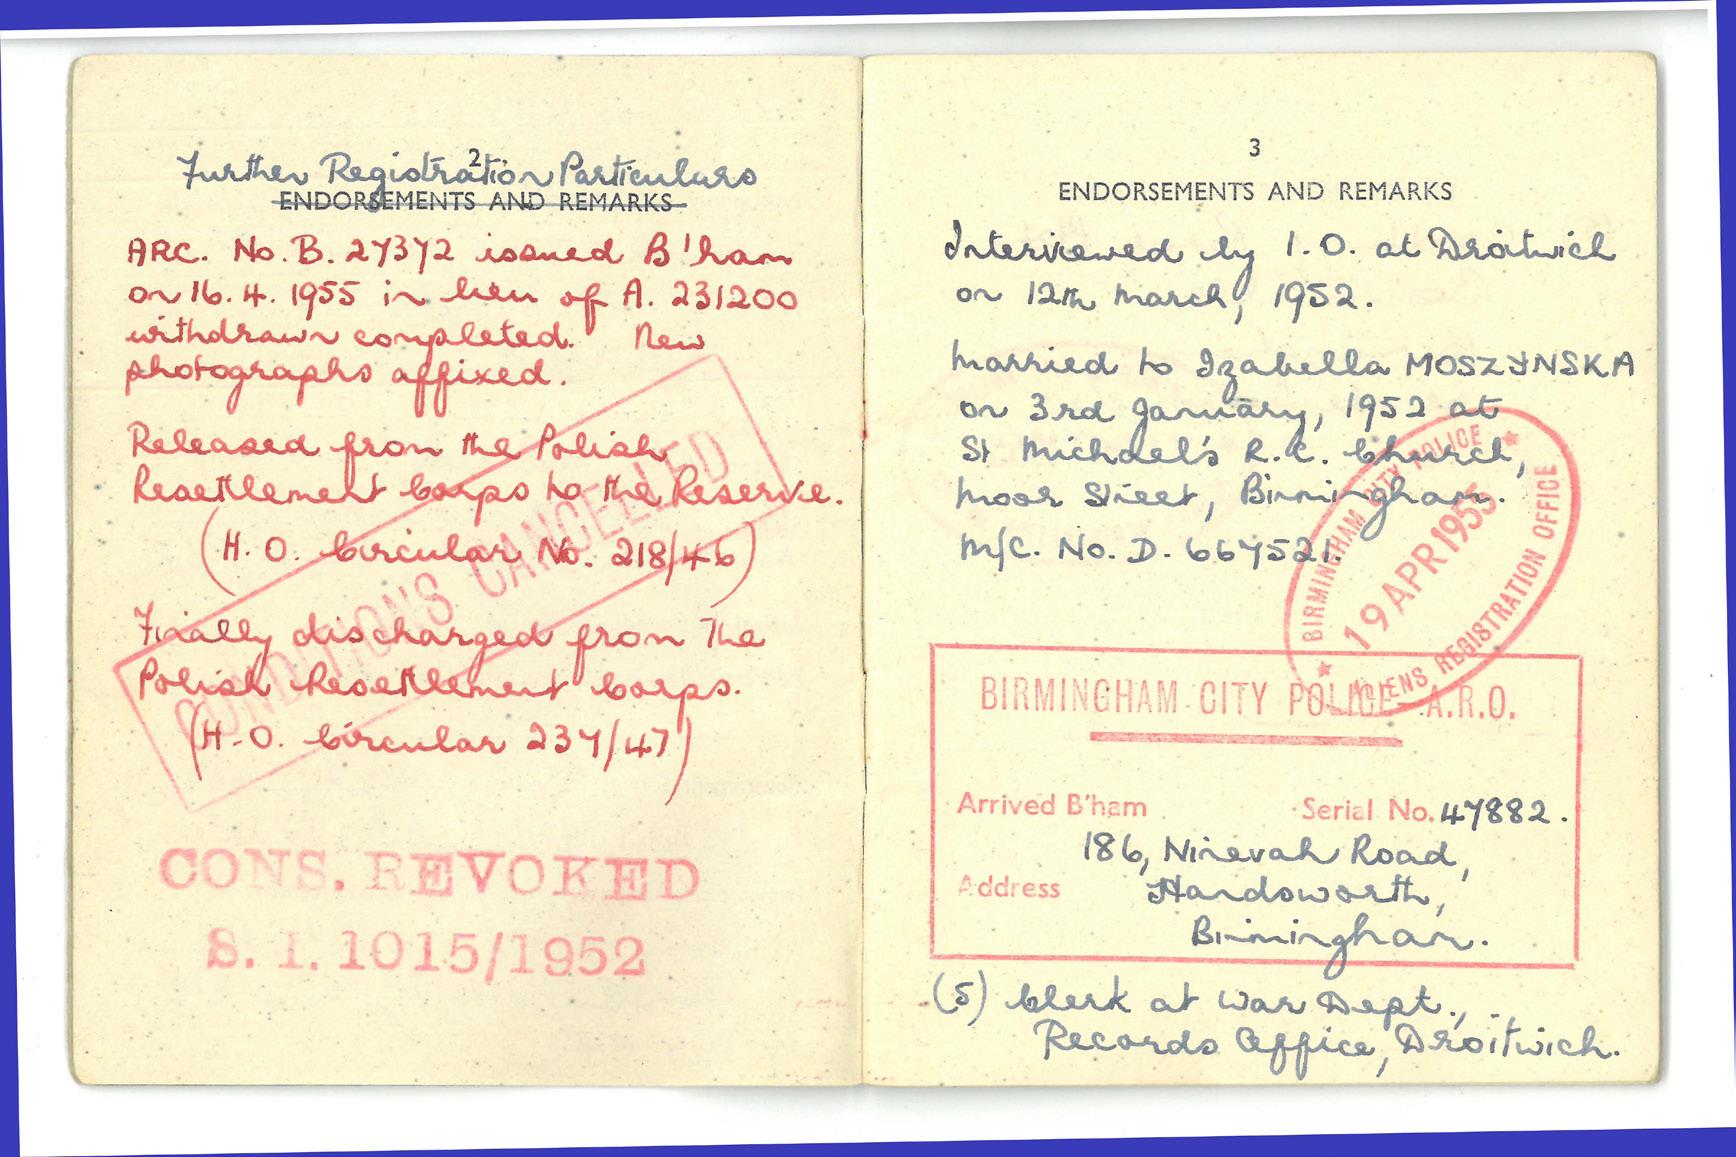 2
Further Registration Particulars
ENDORSEMENTS AND REMARKS
ARC. No. B. 27372 issued B'ham
on 16. 4. 1955 in lieu of A. 231200
withdrawn completed. New
photographs affixed.
Released from the Polish
Resettlement Corps to the Reserve.
(H. O. Circular No. 218/46)
Finally discharged from the
Polish Resettlement Corps.
(H. O. Circular 237/47)
CONDITIONS CANCELLED
CONS. REVOKED
S. I. 1015/1952
3
ENDORSEMENTS AND REMARKS
Interviewed by I. O. at Droitwich
on 12th March, 1952.
Married to Izabella MOSZYNSKA
on 3rd January, 1952 at
St Michael's R.C. Church,
Moor Street, Birmingham.
M/C. No. D. 667521.
BIRMINGHAM CITY POLICE
19 APR 1955
ALIENS REGISTRATION OFFICE
BIRMINGHAM CITY POLICE A.R.O.
Arrived B'ham Serial No. 47882.
186, Ninevah Road,
Address Handsworth,
Birmingham.
(5) Clerk at War Dept.,
Records Office, Droitwich.